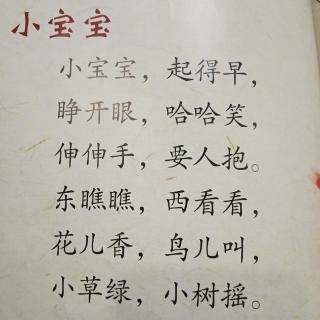 小宝宝
小宝宝，起得早，
睁开眼，哈哈笑，
伸伸手，要人抱。
东瞧瞧，西看看，
花儿香，鸟儿叫，
小草绿，小树摇。